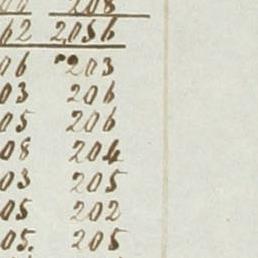 208
62 2,056
06 203
03 206
05 206
08 204
03 205
05 202
05. 205